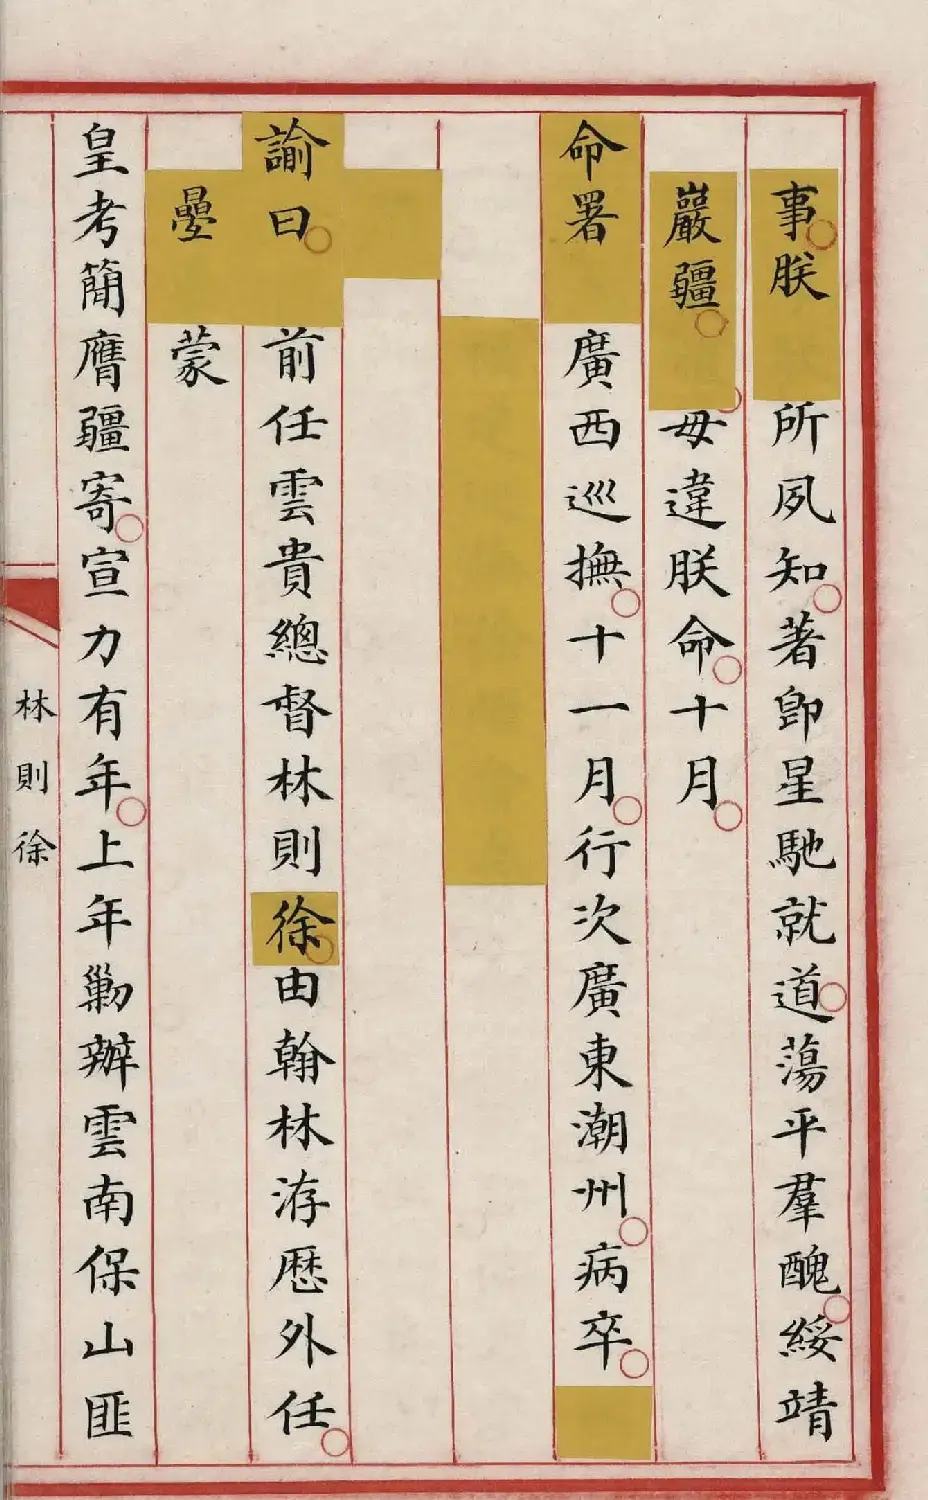 事朕所夙知著卽星馳就道蕩平羣醜綏靖
巖疆毋違朕命十月
命署廣西巡撫十一月行次廣東潮州病卒
諭曰前任雲貴總督林則徐由翰林洊歷外任
疊蒙
皇考簡膺疆寄宣力有年上年勦辦雲南保山匪
林則徐